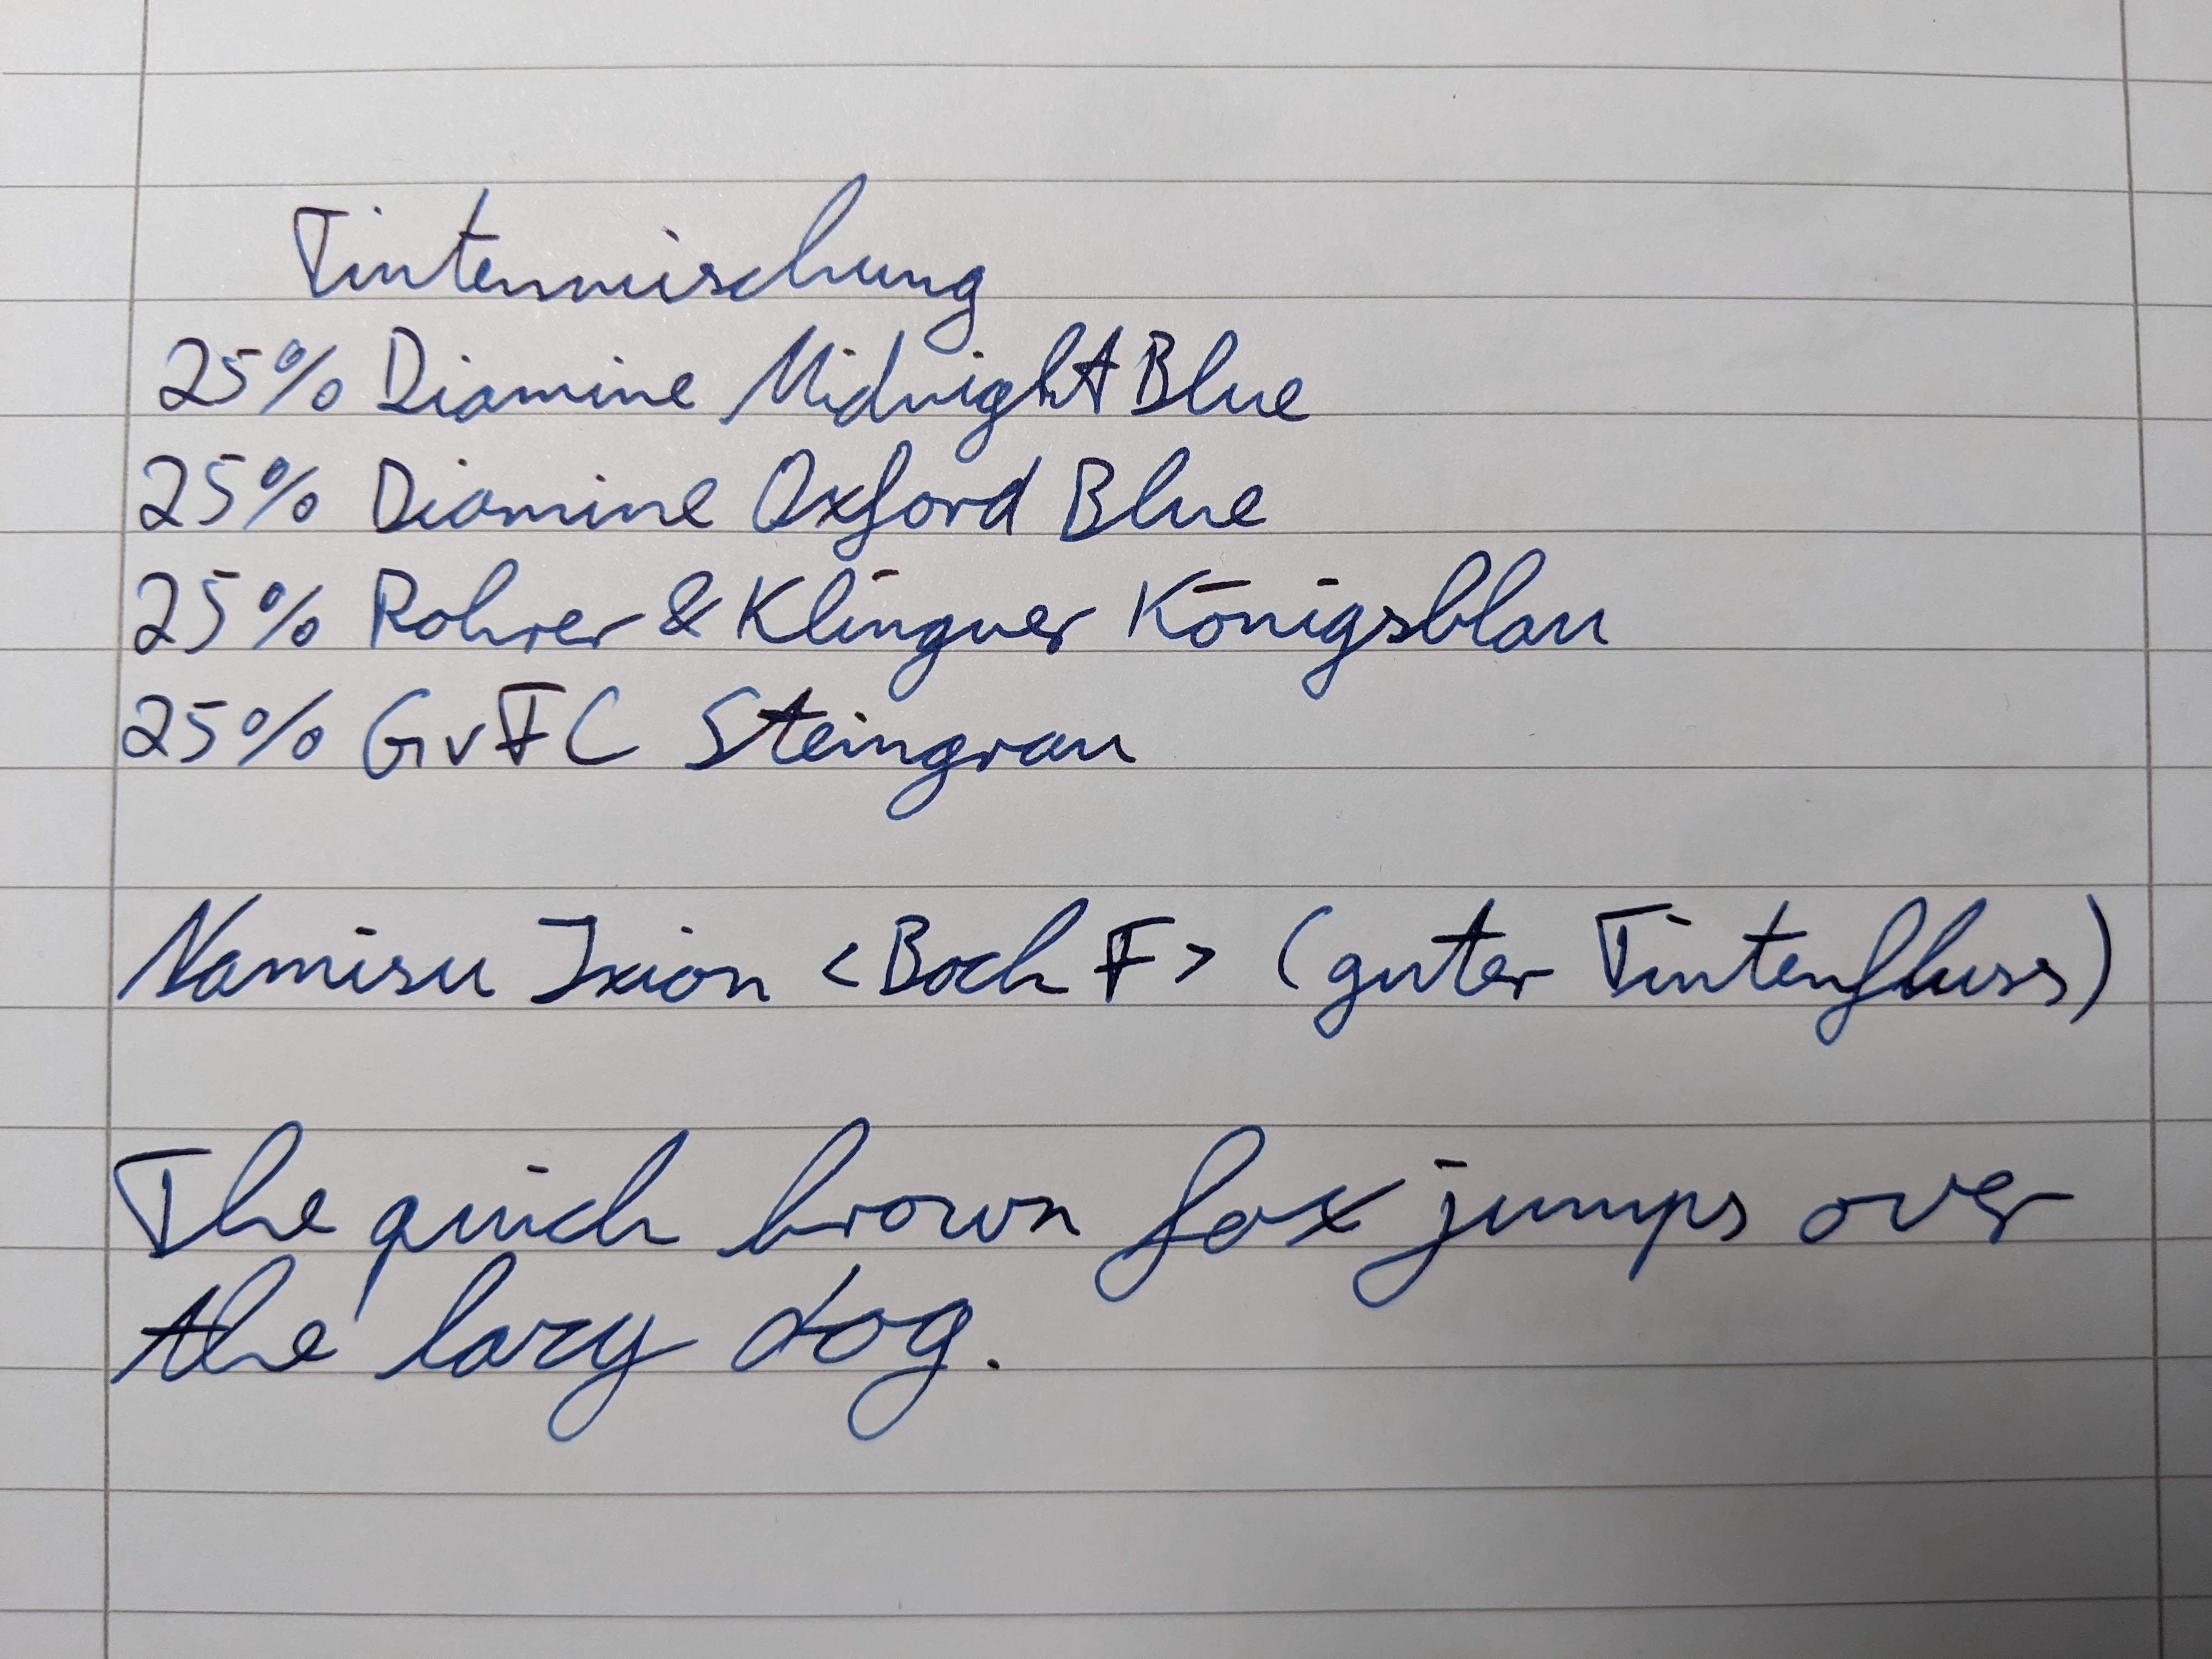 Tintenmischung
25% Diamine Midnight Blue
25% Diamine Oxford Blue
25% Rohrer & Klingner Königsblau
25% GvFC Steingrau
Namisu Ixion <Bock F> (guter Tintenfluss)
The quick brown fox jumps over
the lazy dog.